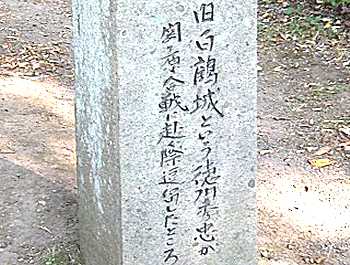 旧白鶴城という徳川秀忠が
関ヶ原合戦に赴く際逗留したところ